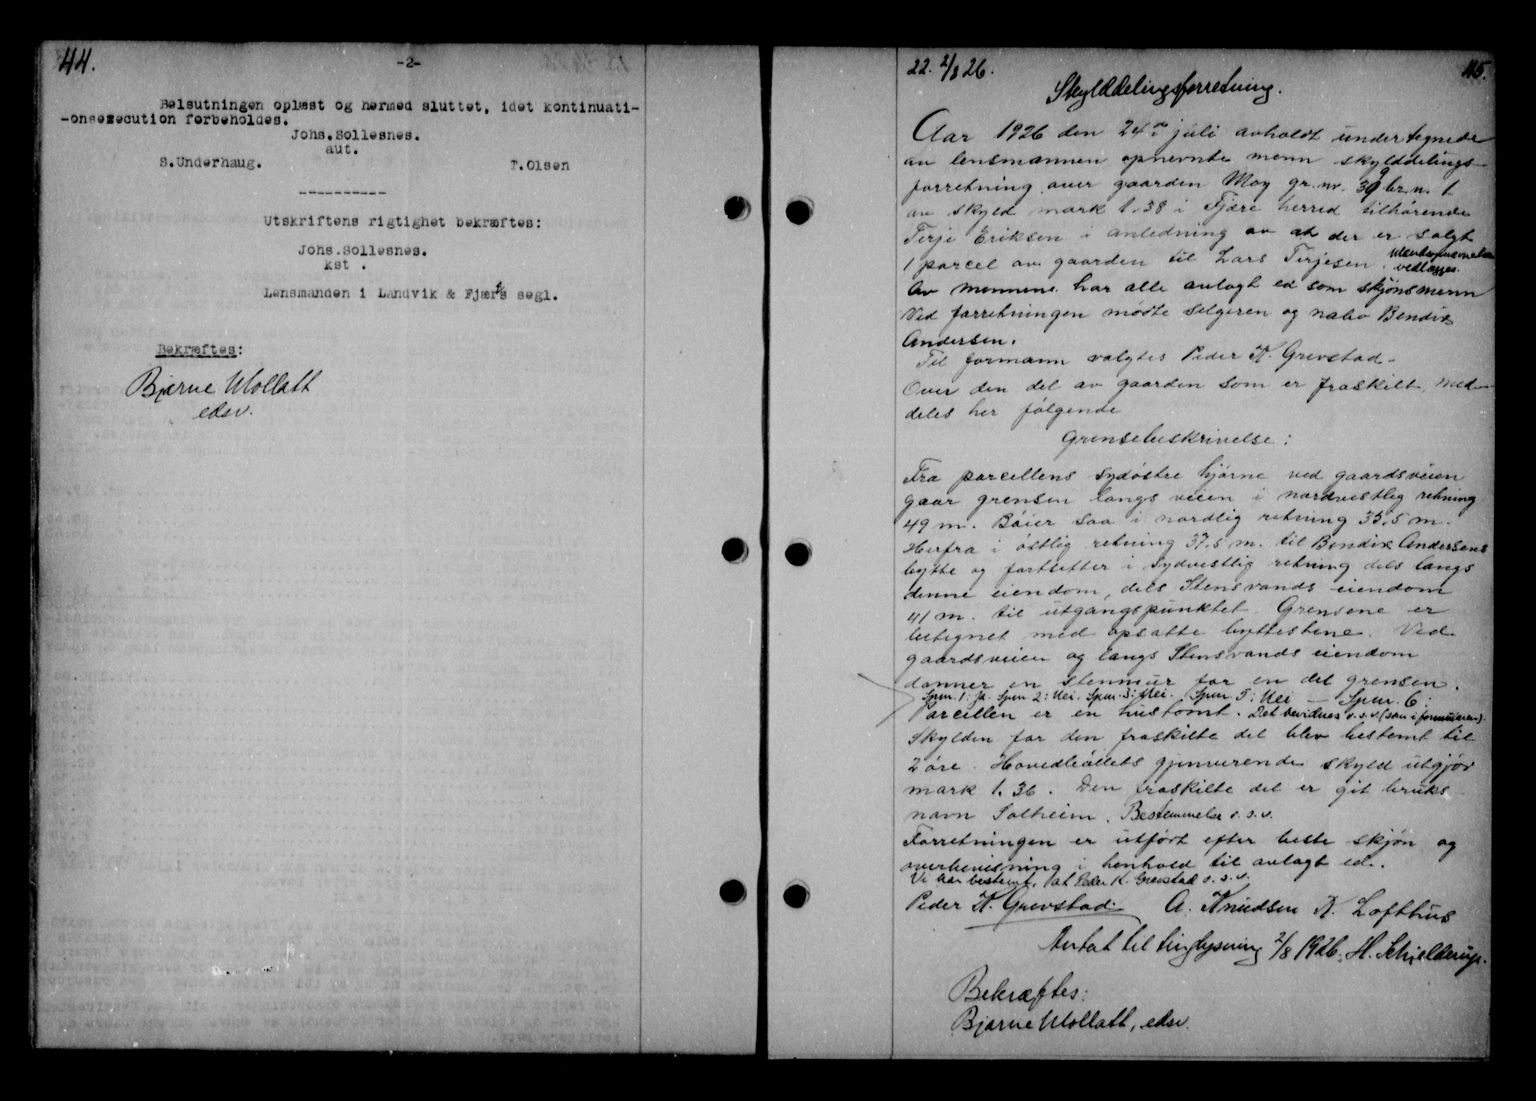 44.
-2-
Belsutningen oplæst og hermed sluttet, idet kontinuati-
-onsexecution forbeholdes.
Johs.Sollesnes.
aut.
S.Underhaug. T.Olsen
----------
Utskriftens rigtighet bekræftes:
Johs.Sollesnes.
kst .
Lensmanden i Landvik & Fjære's segl.
Bekræftes:
Bjarne Mollatt
edsv.
22. 2/8 26. 45.
Skylddelingsforretning.
Aar 1926 den 24de juli avholdt undertegnede
av lensmannen opnevnte menn skylddelings-
forretning over gaarden Moy gr. nr. 39 br. n. 1
av skyld mark 1.38 i Fjære herred tilhørende
Terje Eriksen i anledning av at der er solgt
1 parcel av gaarden til Lars Terjesen.
vedlægges.
Av mennene har alle avlagt ed som skjønsmenn
Ved forretningen møtte selgeren og nabo Bendix
Andersen.
Til formann valgtes Peder K. Grevstad.
Over den del av gaarden som er fraskilt, med-
deles her følgende
Grensebeskrivelse:
Fra parcellens sydøstre hjørne ved gaardsveien
gaar grensen langs veien i nordvestlig retning
49 m. Bøier saa i nordlig retning 35,5 m.
Herfra i østlig retning 37,5 m. til Bendix Andersens
bytte og fortsetter i sydvestlig retning dels langs
denne eiendom, dels Stensvands eiendom
41 m. til utgangspunktet. Grensene er
betegnet med opsatte byttestene. Ved
gaardsveien og langs Stensvands eiendom
danner en stenmur for en del grensen.
Spm. 1: Ja. Spm. 2: Nei. Spm. 3: Nei. Spm 5: Nei – Spm. 6:
Parcellen er en hustomt. Det bevidnes o.s.v. (som i formularen).
Skylden for den fraskilte del blev bestemt til
2 øre. Hovedbøllets gjenværende skyld utgjør
mark 1.36. Den fraskilte del er git bruks-
navn Solheim. Bestemmelse o.s.v.
Forretningen er utført efter beste skjøn og
overbevisning i henhold til avlagt ed.
Vi har bestemt, at Peder K. Grevstad o.s.v.
Peder K. Grevstad. A. Knudsen K. Lofthus
Antat til tinglysning 2/8 1926. H. Schjelderup.
Bekræftes:
Bjarne Mollatt, edsv.